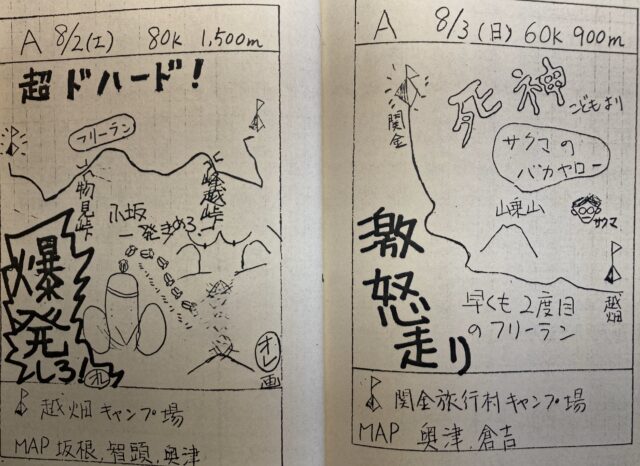 A 8/2(土) 80K 1,500m
超ドハード!
フリーラン
物見峠
峠越峠
小坂
一発きめろ
爆発しろ!
オレ
オレ画
越畑キャンプ場
MAP 坂根,智頭,奥津
A 8/3(日) 60K 900m
死神
こどもより
関金
サクマの
バカヤロー
山乗山
サクマ
激怒走り
越畑
早くも2度目
のフリーラン
関金旅行村キャンプ場
MAP 奥津,倉吉